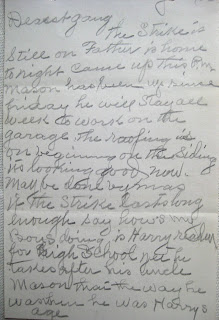 Dearest gang
The Strike is
Still on Father is home
to night came up this P.m.
Mason has been up since
friday he will stay all
week to work on the
garage the roofing is
on begining on the siding
its looking good now.
May be done by
if the Strike lasts long
enough say hows my
boys doing is Harry
for high School yet he
takes after his uncle
Mason that the way he
was when he was Harrys
age